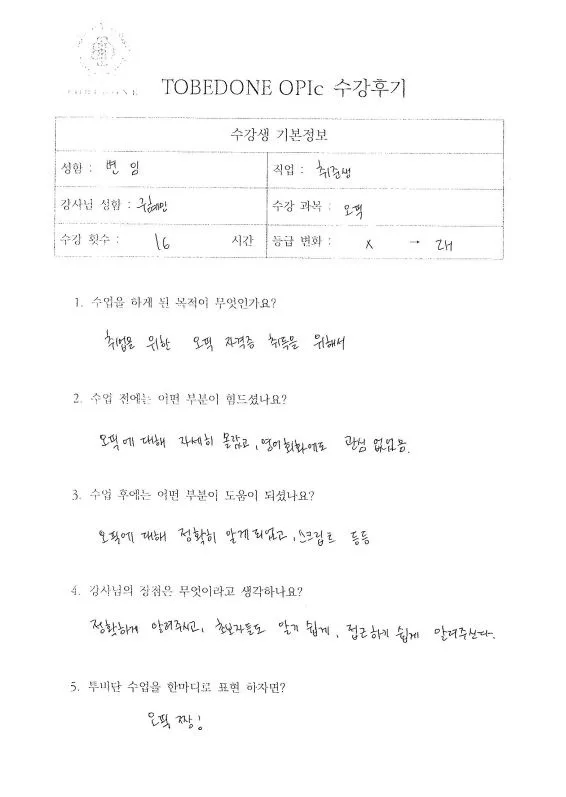 TOBEDONE
TOBEDONE OPIc 수강후기
수강생 기본정보
성함 : 변 임
직업 : 취준생
강사님 성함 : 구혜민
수강 과목 : 오픽
수강 횟수 : 16 시간
등급 변화 : x → 2H
1. 수업을 하게 된 목적이 무엇인가요?
취업을 위한 오픽 자격증 취득을 위해서
2. 수업 전에는 어떤 부분이 힘드셨나요?
오픽에 대해 자세히 몰랐고, 영어회화에도 관심 없었음.
3. 수업 후에는 어떤 부분이 도움이 되셨나요?
오픽에 대해 정확히 알게되었고, 스크립트 등등
4. 강사님의 장점은 무엇이라고 생각하나요?
정확하게 알려주시고, 초보자들도 알기 쉽게, 접근하기 쉽게 알려주신다.
5. 투비단 수업을 한마디로 표현 하자면?
오픽 짱!